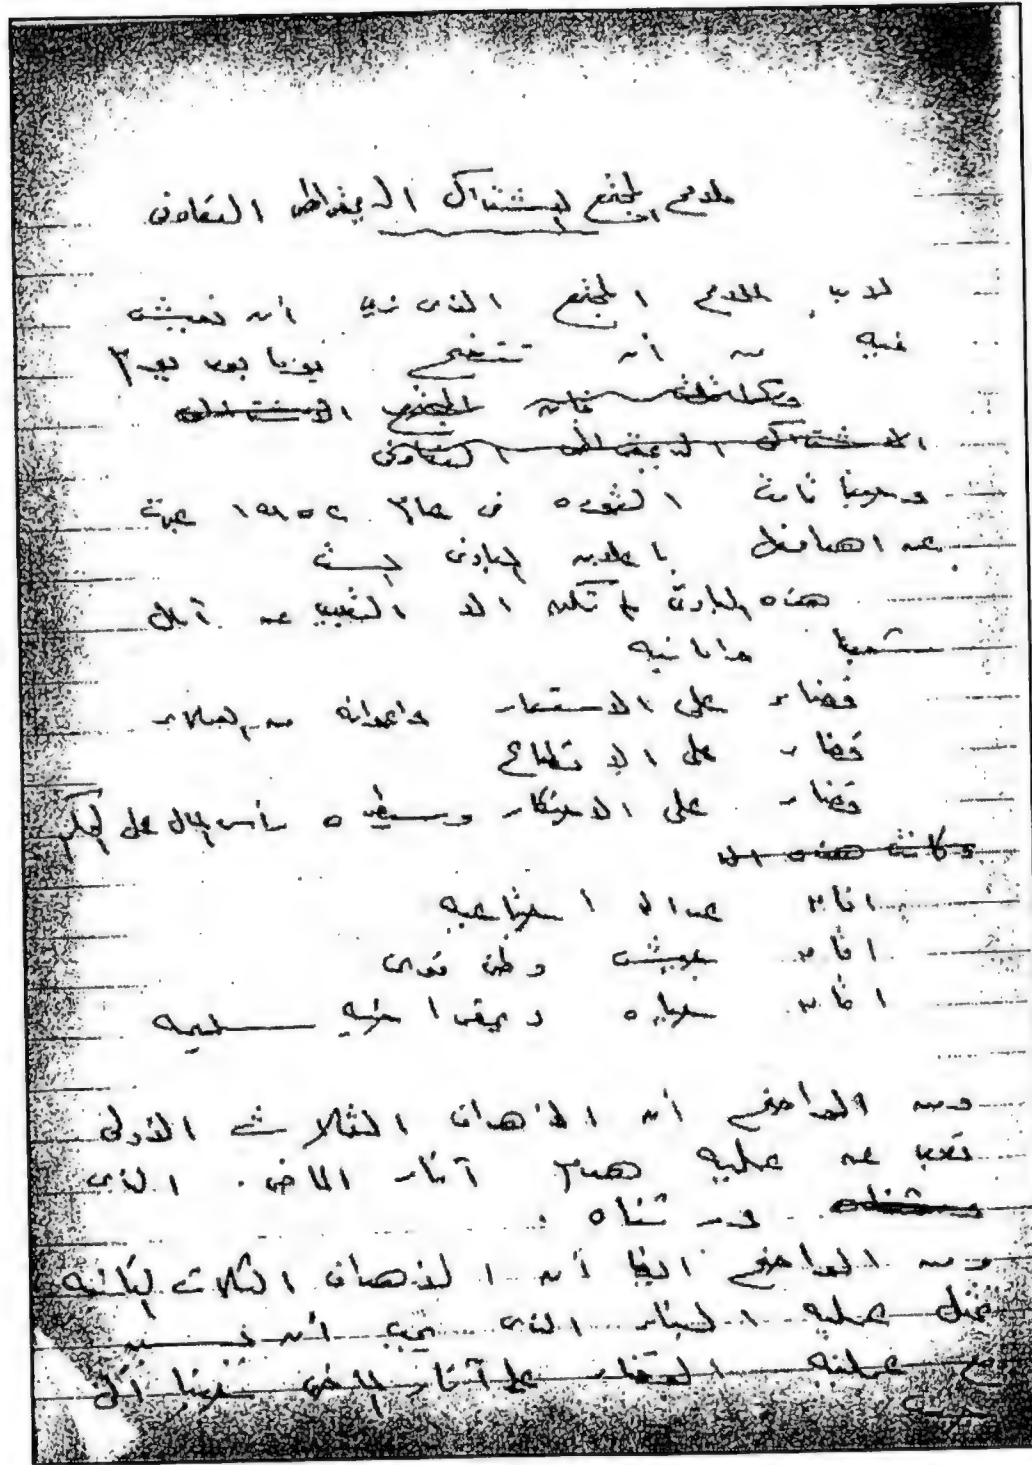 ملامح المجتمع الاشتراكى الديمقراطى التعاونى
لابد لملامح المجتمع الذى نريد أن نعيش
فيه من أن تتضح يوما بعد يوم
وبذلك فان المجتمع الاشتراكى
الاشتراكى الديمقراطى التعاونى
وحينما قامت الثورة فى عام ١٩٥٢ عبرت
عن اهدافها باعلان المبادئ الستة
هذه المبادئ لم تكن الا التعبير عن آمال
شعبنا وأمانيه
قضاء على الاستعمار واعوانه من العملاء
قضاء على الاقطاع
قضاء على الاحتكار وسيطرة رأس المال على الحكم
وكانت هذه الا
اقامة عدالة اجتماعية
اقامة جيش وطنى قوى
اقامة حياه ديمقراطيه سليمه
ومن الواضح أن الاهداف الثلاث الاولى
تعبر عن عملية هدم آثار الماضى . الذى
ورثناه .
ومن الواضح ايضا أن الاهداف الثلاث الثانيه
تمثل عمليه البناء الذى يجب أن
مع عملية القضاء على آثار الماضى